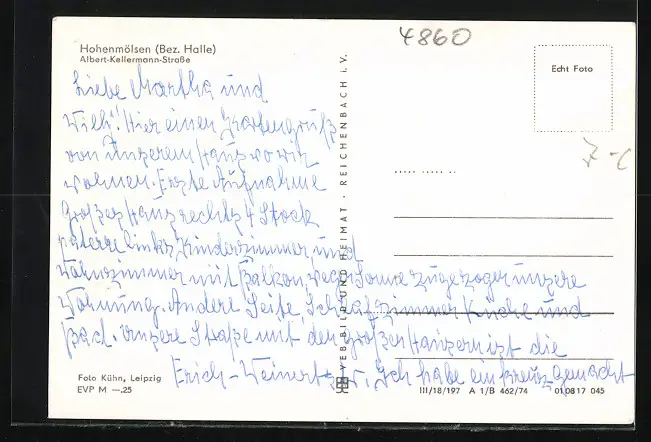 4860
Hohenmölsen (Bez. Halle)
Albert-Kellermann-Straße
Echt Foto
Liebe Martha und
Willi! Hier einen Kartengruß
von unserem Haus wo wir
wohnen. Erste Aufnahme
großes Haus rechts 4 Stock
links Kinderzimmer und
Wohnzimmer mit Balkon, wegen Sonne zugezogen unsere
Wohnung. Andere Seite Schlafzimmer Küche und
Bad. Unsere Straße mit den großen Häusern ist die
Erich-Weinert-. Ich habe ein Kreuz gemacht
VEB BILD UND HEIMAT · REICHENBACH i. V.
Foto Kühn, Leipzig
EVP M —.25
III/18/197 A 1/B 462/74 01 08 17 045